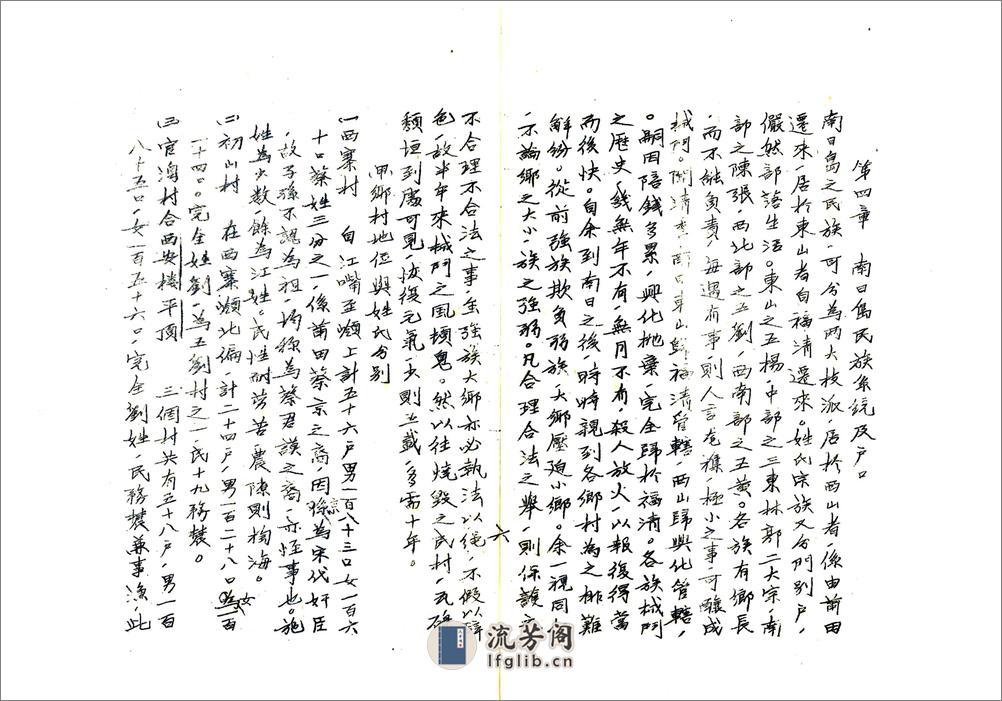 第四章 南日島民族系統及戶口
南日島之民族，可分為兩大枝派，居於西山者係由莆田
遷來，居於東山者自福清遷來。姓氏宗族又分門別戶，
儼然部落生活。東山之五楊，中部之三東林郭二大宗，南
部之陳張，西北部之五劉，西南部之五黃。各族有鄉長
，而不能負責，每遇有事，則人言危襍，極小之事，可釀成
械鬥。前清東山歸福清管轄，西山歸興化管轄，
。嗣因賠錢多累，興化拋棄，完全歸於福清。各族械鬥
之歷史，幾無年不有，無月不有，殺人放火，以報復得當
而後快。自余到南日之後，時時親到各鄉村為之排難
解紛。從前強族欺負弱族，大鄉壓迫小鄉。余一視同仁
，不論鄉之大小，族之強弱。凡合理合法之舉，則保護之
六
不合理不合法之事，雖強族大鄉亦必執法以繩，不假以辭
色，故半年來械鬥之風頓息。然以往燒毀之民村，瓦礫
頹垣到處可見，恢復元氣，少則五載，多需十年。
甲 鄉村地位與姓氏分別
(一)西寨村 自江嘴至瀕上計五十六戶男一百八十三口女一百六
十口蔡姓三分之一，係莆田蔡京之裔因京為宋代奸臣
，故子孫不認為祖，均稱為蔡君謨之裔，亦怪事也。施
姓為少數，餘為江姓。民性耐勞苦，農隙則梭海。
(二)初山村 在西寨瀕北偏，計二十四戶，男一百二十八口女一百
一十四口。完全姓劉，為五劉村之一，民十九務農。
(三)官澳村合西安樓平頂 三個村共有五十八戶，男一百
八十五口，女一百五十六口，完全劉姓，民務農兼事漁，此
流芳阁
lfglib.cn